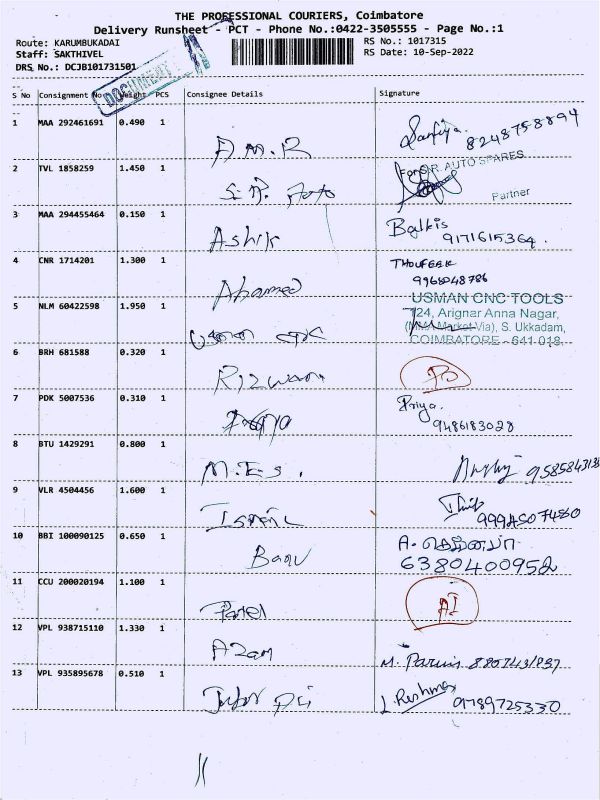 THE PROFESSIONAL COURIERS, Coimbatore
Delivery Runsheet - PCT - Phone No.:0422-3505555 - Page No.:1
Route: KARUMBUKADAI RS No.: 1017315
Staff: SAKTHIVEL RS Date: 10-Sep-2022
DRS No.: DCJB101731501
DOCUMENT
S No Consignment No Weight PCS Consignee Details Signature
1 MAA 292461691 0.490 1 A.M.R 8248758894
2 TVL 1858259 1.450 1 For S.R. AUTO SPARES
Partner
3 MAA 294455464 0.150 1 Ashik Balkis 9171615364.
4 CNR 1714201 1.300 1 Ahamed THOUFEEK
9965048786
5 NLM 60422598 1.950 1 USMAN CNC TOOLS
724, Arignar Anna Nagar,
(MNA Market Via), S. Ukkadam,
COIMBATORE - 641 018.
6 BRH 681588 0.320 1 Rizwan
7 PDK 5007536 0.310 1 Priya.
9486183028
8 BTU 1429291 0.800 1 M.E.S.
9 VLR 4504456 1.600 1 Ismail
10 BBI 100090125 0.650 1 Banu
6380400952
11 CCU 200020194 1.100 1 AI
12 VPL 938715110 1.330 1 Azam
13 VPL 935895678 0.510 1 L. Reshma 9789725330